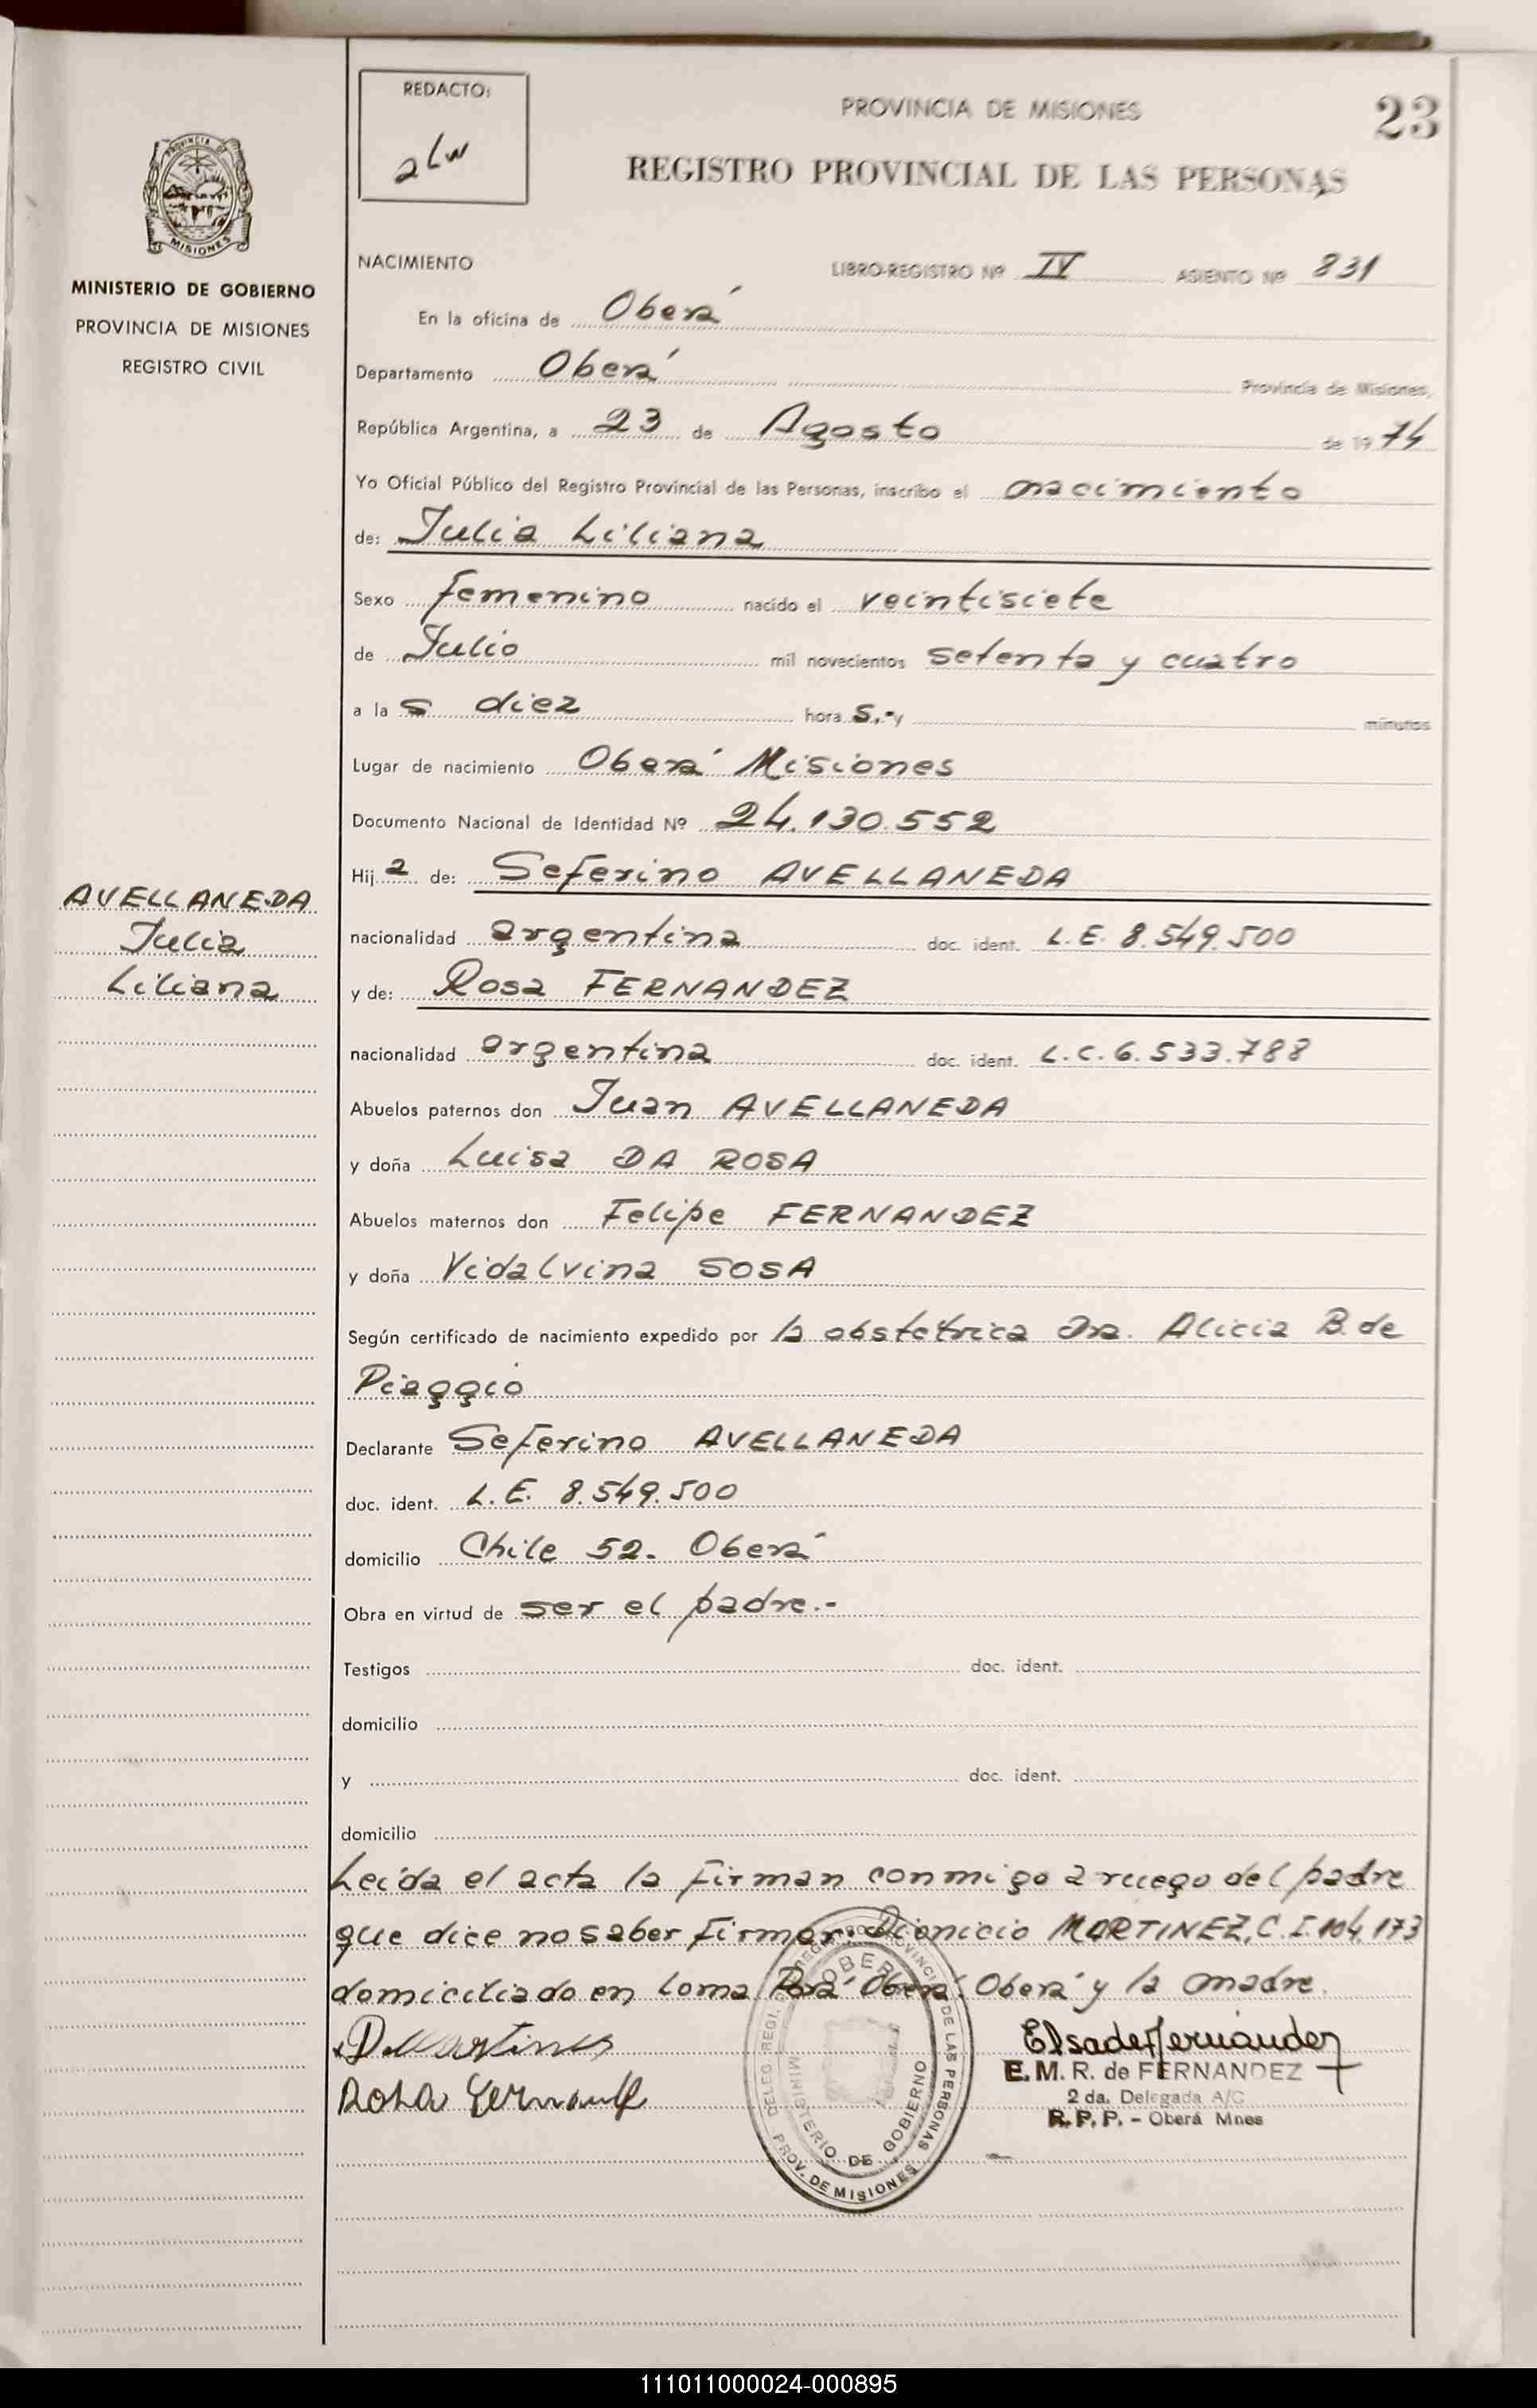 REDACTO:
PROVINCIA DE MISIONES
23
REGISTRO PROVINCIAL DE LAS PERSONAS
PROVINCIA DE
MISIONES
MINISTERIO DE GOBIERNO
PROVINCIA DE MISIONES
REGISTRO CIVIL
NACIMIENTO LIBRO-REGISTRO Nº IV ASIENTO Nº 831
En la oficina de Oberá
Departamento Oberá Provincia de Misiones,
República Argentina, a 23 de Agosto de 1974
Yo Oficial Público del Registro Provincial de las Personas, inscribo el nacimiento
de: Julia Liliana
Sexo femenino nacido el veintisiete
de Julio mil novecientos setenta y cuatro
a las diez horas.- y minutos
Lugar de nacimiento Oberá Misiones
Documento Nacional de Identidad Nº 24.130.552
Hija de: Seferino AVELLANEDA
AVELLANEDA
Julia
Liliana
nacionalidad argentina doc. ident. L.E. 8.549.500
y de: Rosa FERNANDEZ
nacionalidad argentina doc. ident. L.C. 6.533.788
Abuelos paternos don Juan AVELLANEDA
y doña Luisa DA ROSA
Abuelos maternos don Felipe FERNANDEZ
y doña Vidalvina SOSA
Según certificado de nacimiento expedido por la obstetrica Dra. Alicia B. de
Piaggio
Declarante Seferino AVELLANEDA
doc. ident. L.E. 8.549.500
domicilio Chile 52. Oberá
Obra en virtud de ser el padre.-
Testigos doc. ident.
domicilio
y doc. ident.
domicilio
Leída el acta la firman conmigo a ruego del padre
que dice no saber firmar: Dionicio MARTINEZ, C.I. 104.173
domiciliado en Loma Porá Oberá. Oberá y la madre.
D. Martines
Rosa Fernande
Elsa de Fernandez
E. M. R. de FERNANDEZ
2 da. Delegada A/C
R. P. P. - Oberá Mnes
DELEG. REGI. PROVINCIAL DE LAS PERSONAS
OBERÁ
MINISTERIO DE GOBIERNO
PROV. DE MISIONES
111011000024-000895